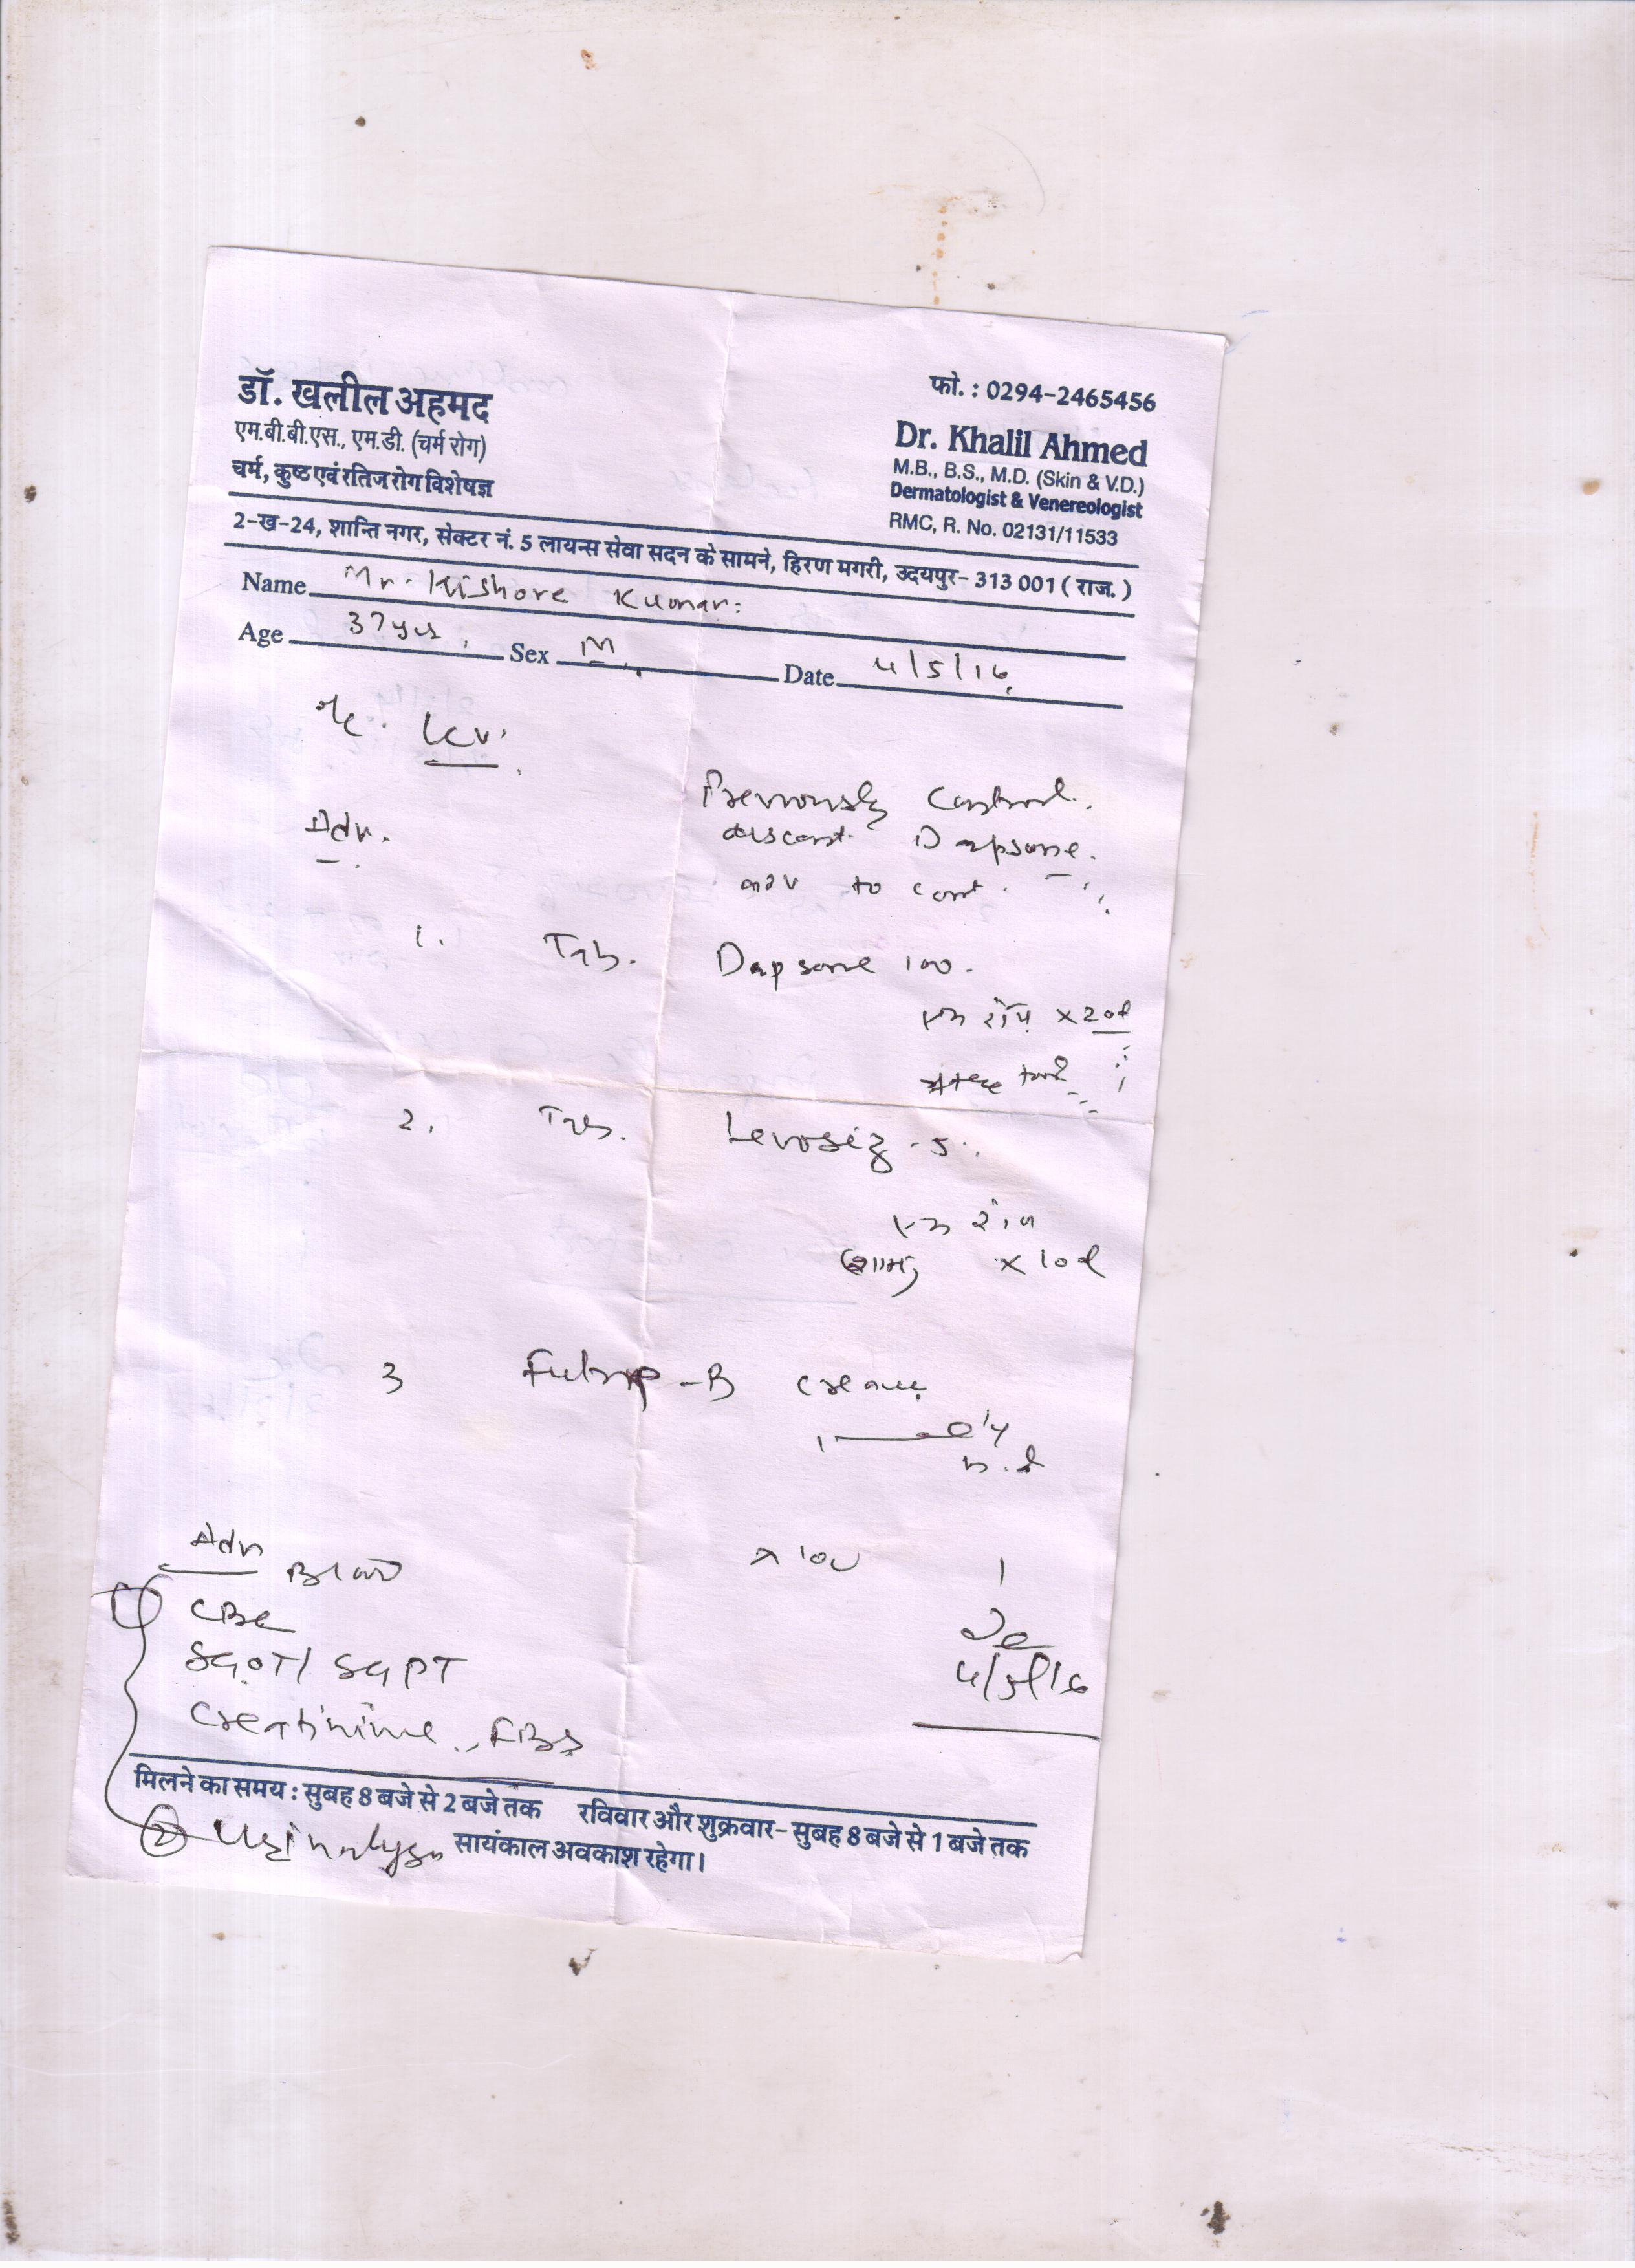 डॉ. खलील अहमद
एम.बी.बी.एस., एम.डी. (चर्म रोग)
चर्म, कुष्ट एवं रतिज रोग विशेषज्ञ
फो. : 0294-2465456
Dr. Khalil Ahmed
M.B., B.S., M.D. (Skin & V.D.)
Dermatologist & Venereologist
RMC, R. No. 02131/11533
2-ख-24, शान्ति नगर, सेक्टर नं. 5 लायन्स सेवा सदन के सामने, हिरण मगरी, उदयपुर- 313 001 ( राज. )
Name Mr. Kishore Kumar
Age 37yrs. Sex M Date 4/5/16
LCV
Previously Control.
Adv. discont. Dapsone.
adv to cont.
1. Tab. Dapsone 100.
रोज x 20d
2. Tab. Levosiz-5.
रोज
शाम x 10d
3 -B cream
Adv
Blood
CBC
SGOT/ SGPT
4/5/16
Creatinine, FBS
मिलने का समय : सुबह 8 बजे से 2 बजे तक रविवार और शुक्रवार- सुबह 8 बजे से 1 बजे तक
सायंकाल अवकाश रहेगा।
2